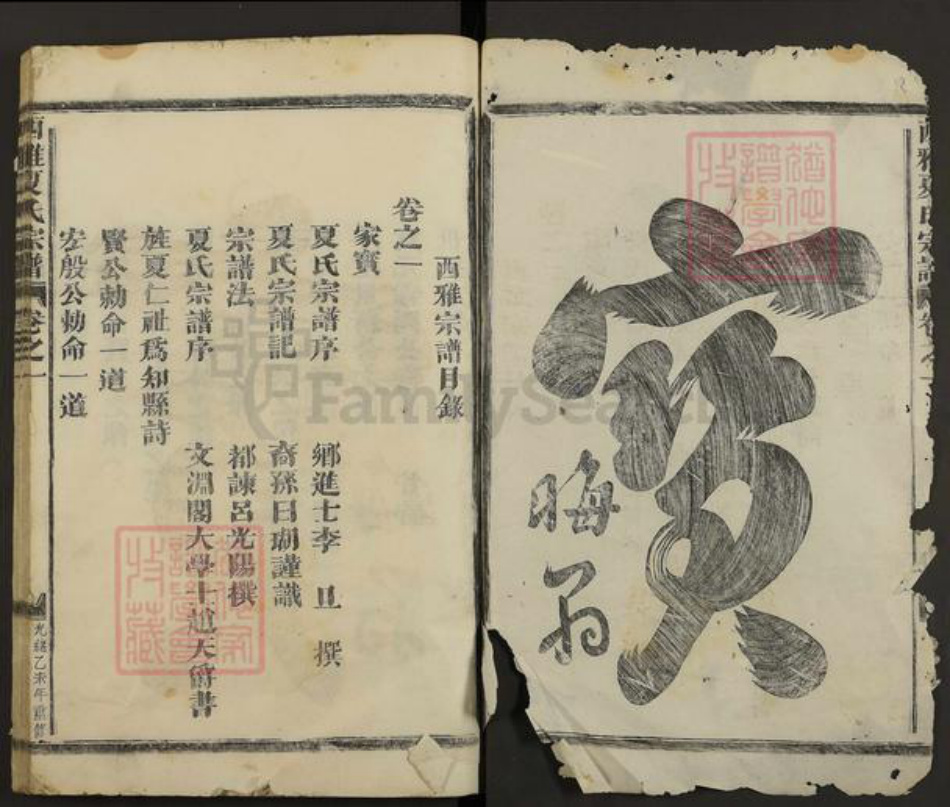 寶
晦翁
西雅宗譜目錄
卷之一
家寶
夏氏宗譜序 鄉進士李 撰
夏氏宗譜記 裔孫日瑚謹識
宗譜法 都諫呂光陽撰
夏氏宗譜序 文淵閣大學士趙大 書
旌夏仁祉爲知縣詩
賢公勅命一道
宏殷公勅命一道
西雅夏氏宗譜 卷之一
光緒乙未年重修
西雅夏氏宗譜 卷之一
FamilySearch